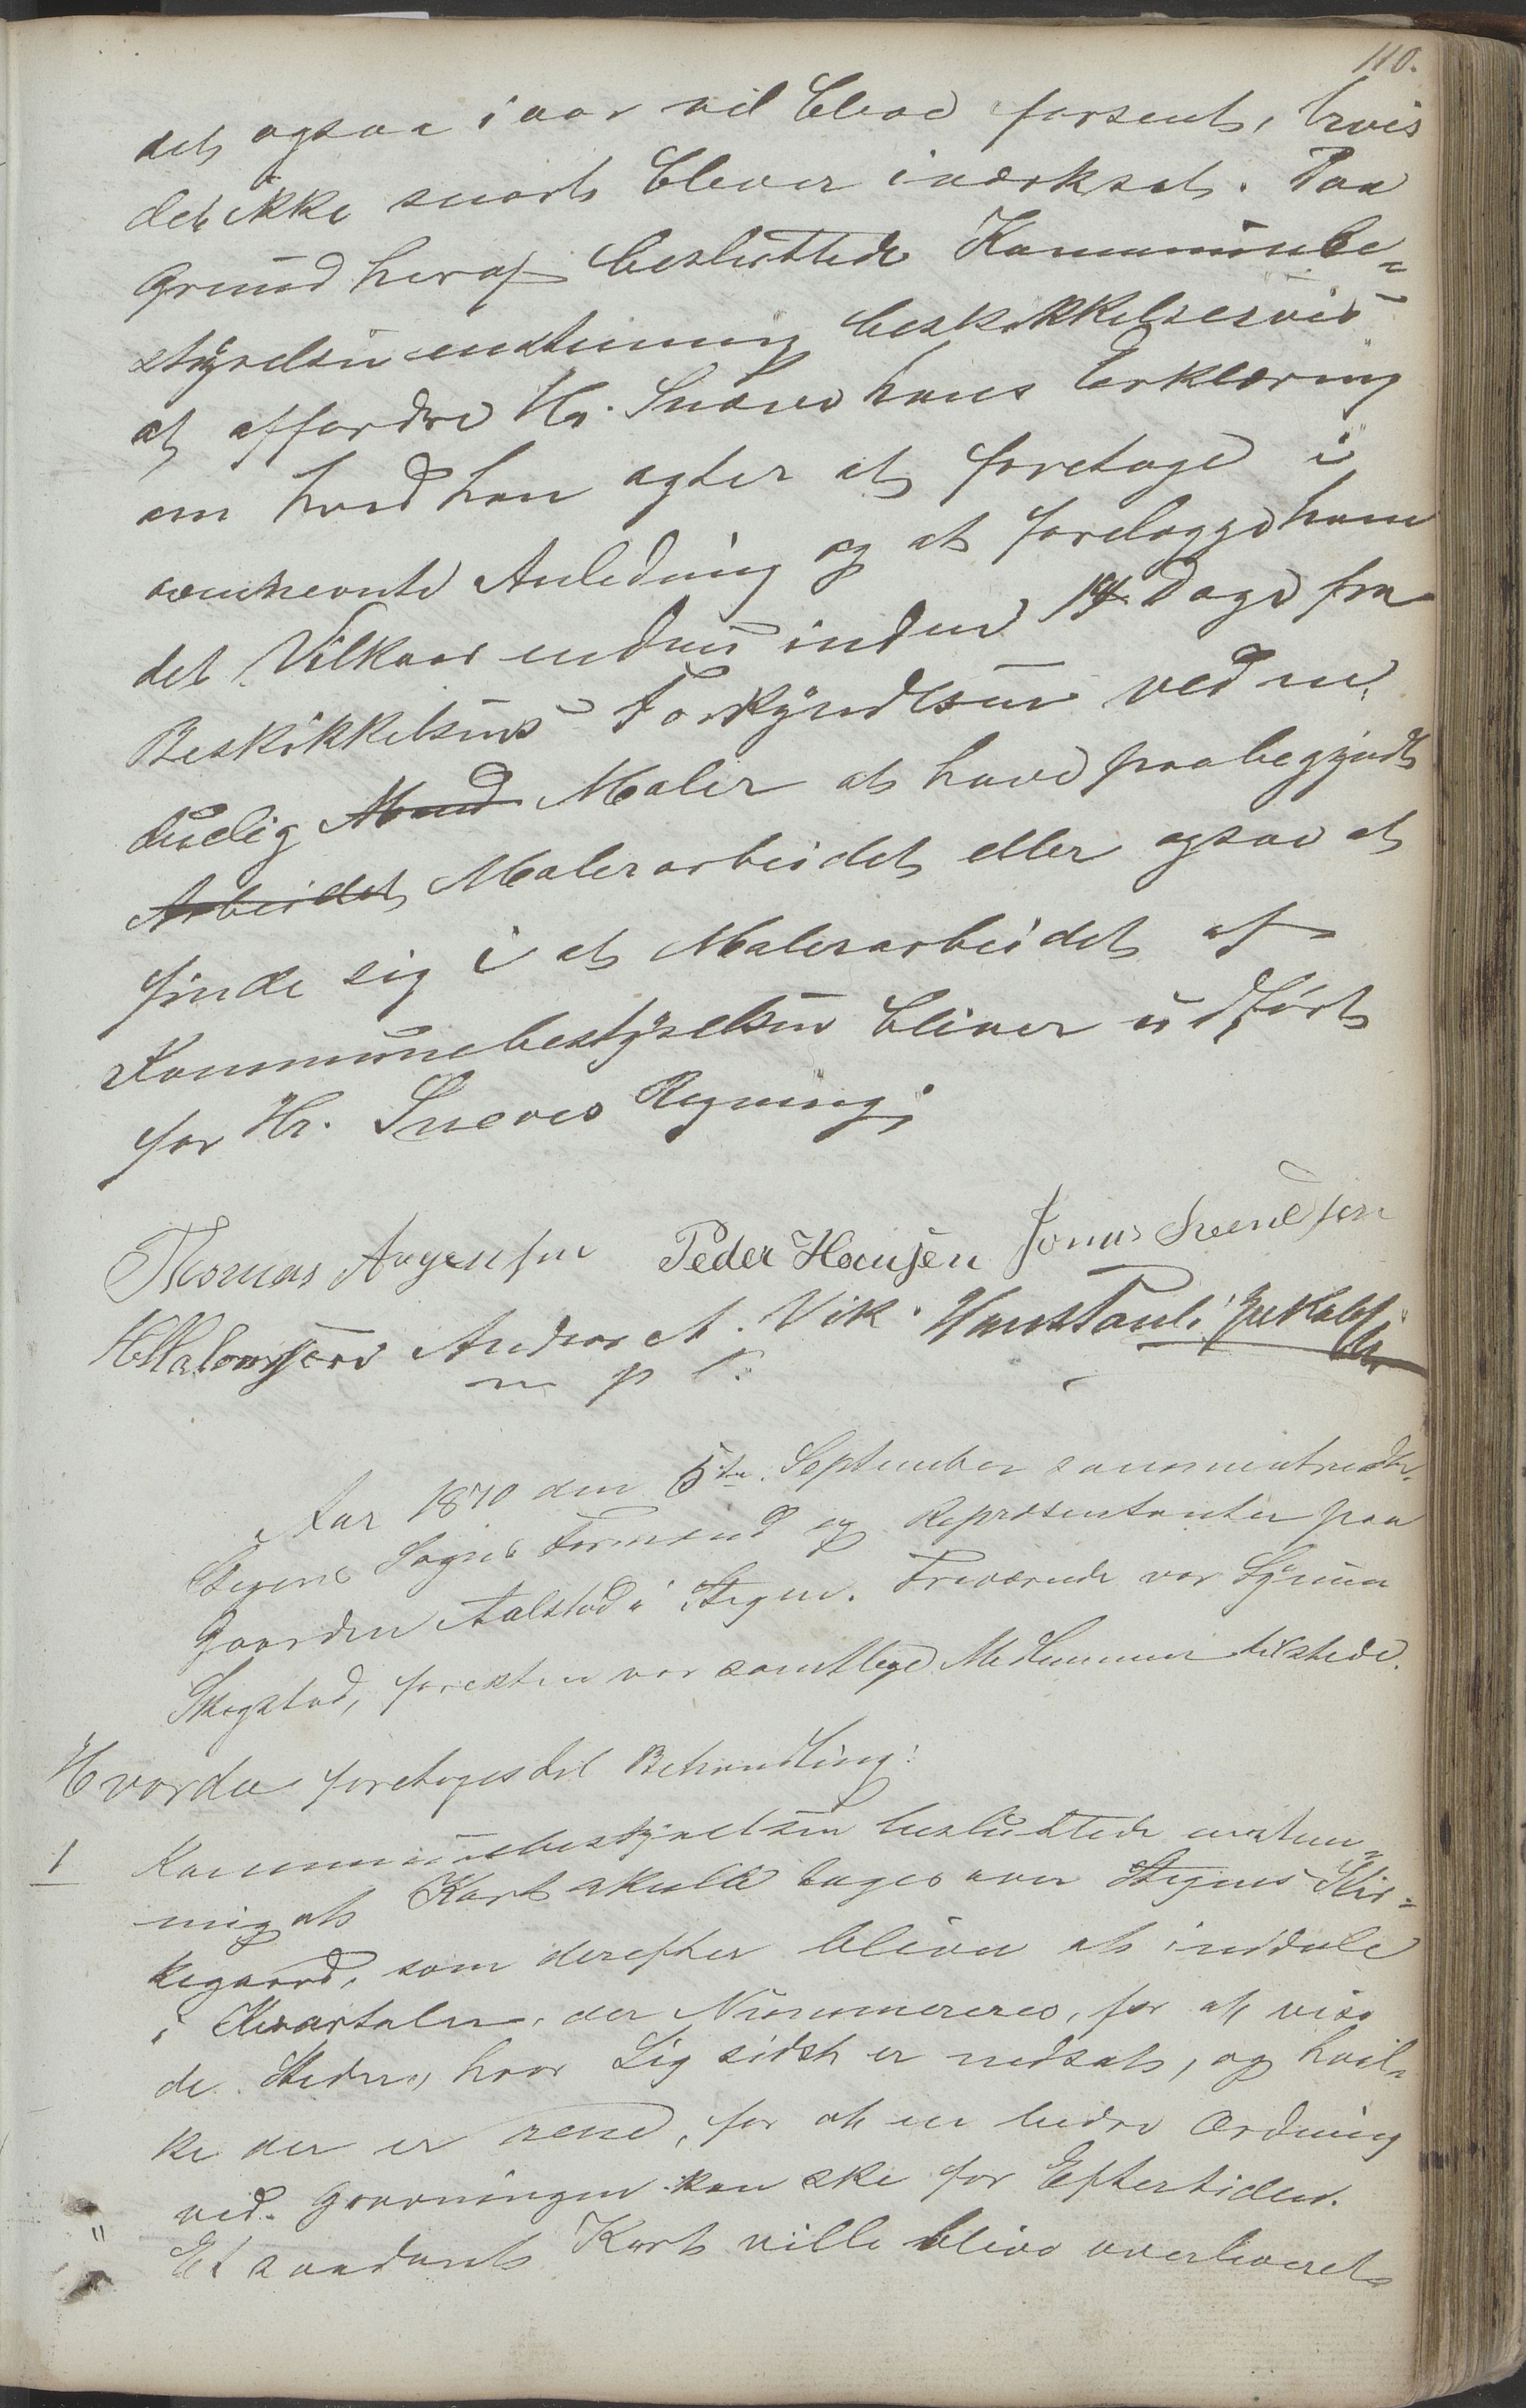 110.
det ogsaa i aar vil bleve forsent, hvis
det ikke snart blever iværksat. Paa
Grund heraf besluttede Kommunebe-
styrelsen enstemmig beskikkelsesvis
at affordre Hr. Snæve hans Erklæring
om hvad han agter at foretage i
omhevnte Anledning og at forelægge ham
det Vilkaar endnu inden 14 Dage fra
Beskikkelsens Forkyndelsen ved en
duelig Mand Maler at have paabegyndt
Arbeidet Malerarbeidet eller ogsaa at
finde sig i at Malerarbeidet af
Kommunebestyrelsen bliver udført
for Hr. Sneves Regning;
Thomas Aagensen Peder Hansen Jonas Svendsen
Andras A. Vik. Hans Pauli
m p P.
Aar 1870 den 5te September sammentraadte
Stegens Sogns Formænd og Repræsentanter paa
Gaarden Aalstad i Stegen. Fraværende var
Skogstad, foresten var samtlige Medlemmer tilstede.
Hvorda foretoges til Behandling:
1 Kommunebestyrelsen besluttede enstem-
mig at Kart skulle tages over Stegens Kir-
kegaard, som derefter bliver at inddele
i Kvartaler, der Nummereres, for at vise
de Steder, hvor Lig sidst er nedsat, og hvil-
ke der er rene, for at en bedre Ordning
ved Gravningen kan ske for Eftertiden.
" Et saadant Kart ville blive overleveret